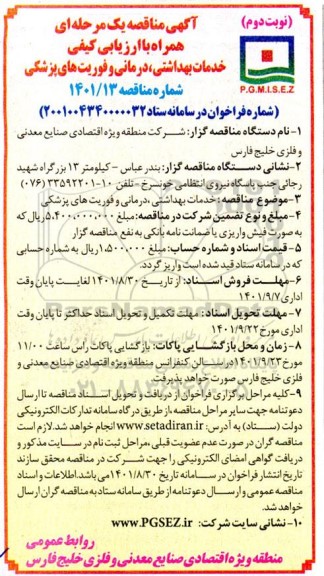 (نوبت دوم)
آگهی مناقصه یک مرحله ای
همراه با ارزیابی کیفی
خدمات بهداشتی، درمانی و فوریت های پزشکی
شماره مناقصه ۱۴۰۱/۱۳
P.G.M.I.S.E.Z
(شماره فراخوان در سامانه ستاد ۲۰۰۱۰۰۴۳۴۰۰۰۰۰۳۲)
۱- نام دستگاه مناقصه گزار: شرکت منطقه ویژه اقتصادی صنایع معدنی
و فلزی خلیج فارس
۲- نشانی دستگاه مناقصه گزار: بندرعباس - کیلومتر ۱۳ بزرگراه شهید
رجائی جنب پاسگاه نیروی انتظامی خونسرخ - تلفن ۱۰-۳۳۵۹۲۲۰۱ (۰۷۶)
۳- موضوع مناقصه: خدمات بهداشتی، درمانی و فوریت های پزشکی
۴- مبلغ و نوع تضمین شرکت در مناقصه: مبلغ ۵،۴۰۰،۰۰۰،۰۰۰ ریال که
به صورت فیش واریزی یا ضمانت نامه بانکی به نفع مناقصه گزار
۵- قیمت اسناد و شماره حساب: مبلغ ۱،۵۰۰،۰۰۰ ریال به شماره حسابی
که در سامانه ستاد قید شده است واریز گردد.
۶- مهلت فروش اسناد: از تاریخ ۱۴۰۱/۸/۳۰ لغایت پایان وقت
اداری ۱۴۰۱/۹/۷
۷- مهلت تحویل اسناد: مهلت تکمیل و تحویل اسناد حداکثر تا پایان وقت
اداری مورخ ۱۴۰۱/۹/۲۲
۸- زمان و محل بازگشایی پاکات: بازگشایی پاکات راس ساعت ۱۱/۰۰
مورخ ۱۴۰۱/۹/۲۳ در سالن کنفرانس منطقه ویژه اقتصادی صنایع معدنی و
فلزی خلیج فارس صورت خواهد پذیرفت.
۹- کلیه مراحل برگزاری فراخوان از دریافت و تحویل اسناد مناقصه تا ارسال
دعوتنامه جهت سایر مراحل مناقصه، از طریق درگاه سامانه تدارکات الکترونیکی
دولت (ستاد) به آدرس: www.setadiran.ir انجام خواهد شد. لازم است
مناقصه گران در صورت عدم عضویت قبلی، مراحل ثبت نام در سایت مذکور و
دریافت گواهی امضای الکترونیکی را جهت شرکت در مناقصه محقق سازند
تاریخ انتشار فراخوان در سامانه تاریخ ۱۴۰۱/۸/۳۰ می باشد. اطلاعات و اسناد
مناقصه عمومی و ارسال دعوتنامه از طریق سامانه ستاد به مناقصه گران ارسال
خواهد شد.
۱۰- نشانی سایت شرکت: www.PGSEZ.ir
روابط عمومی
منطقه ویژه اقتصادی صنایع معدنی و فلزی خلیج فارس